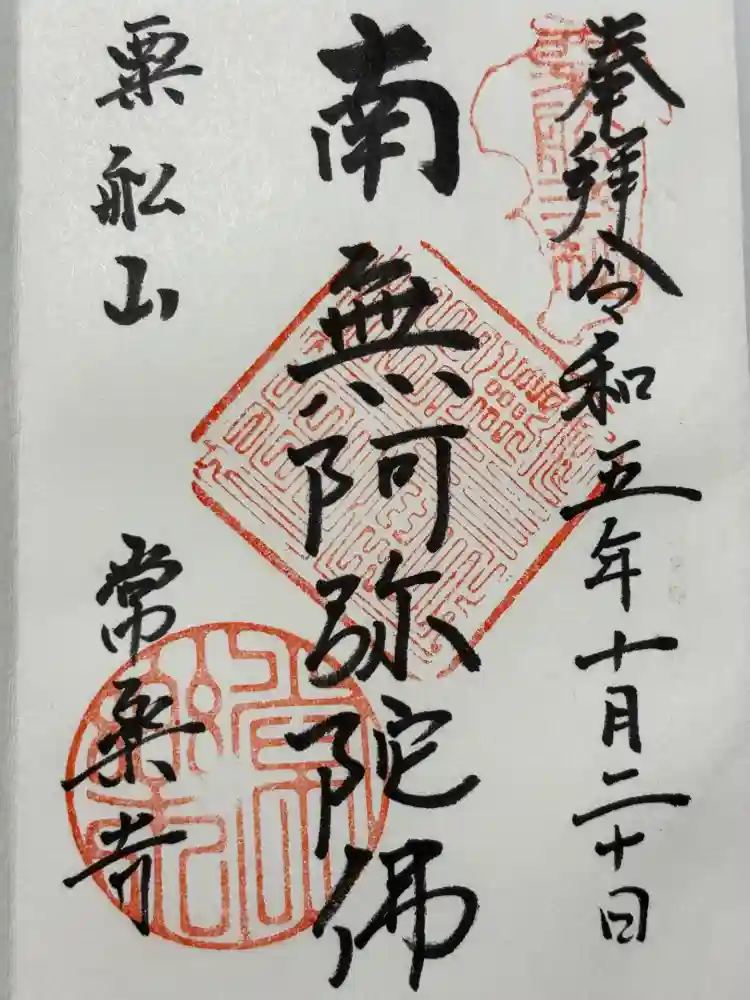 奉拝 令和五年十月二十日
南無阿弥陀佛
粟船山 常楽寺